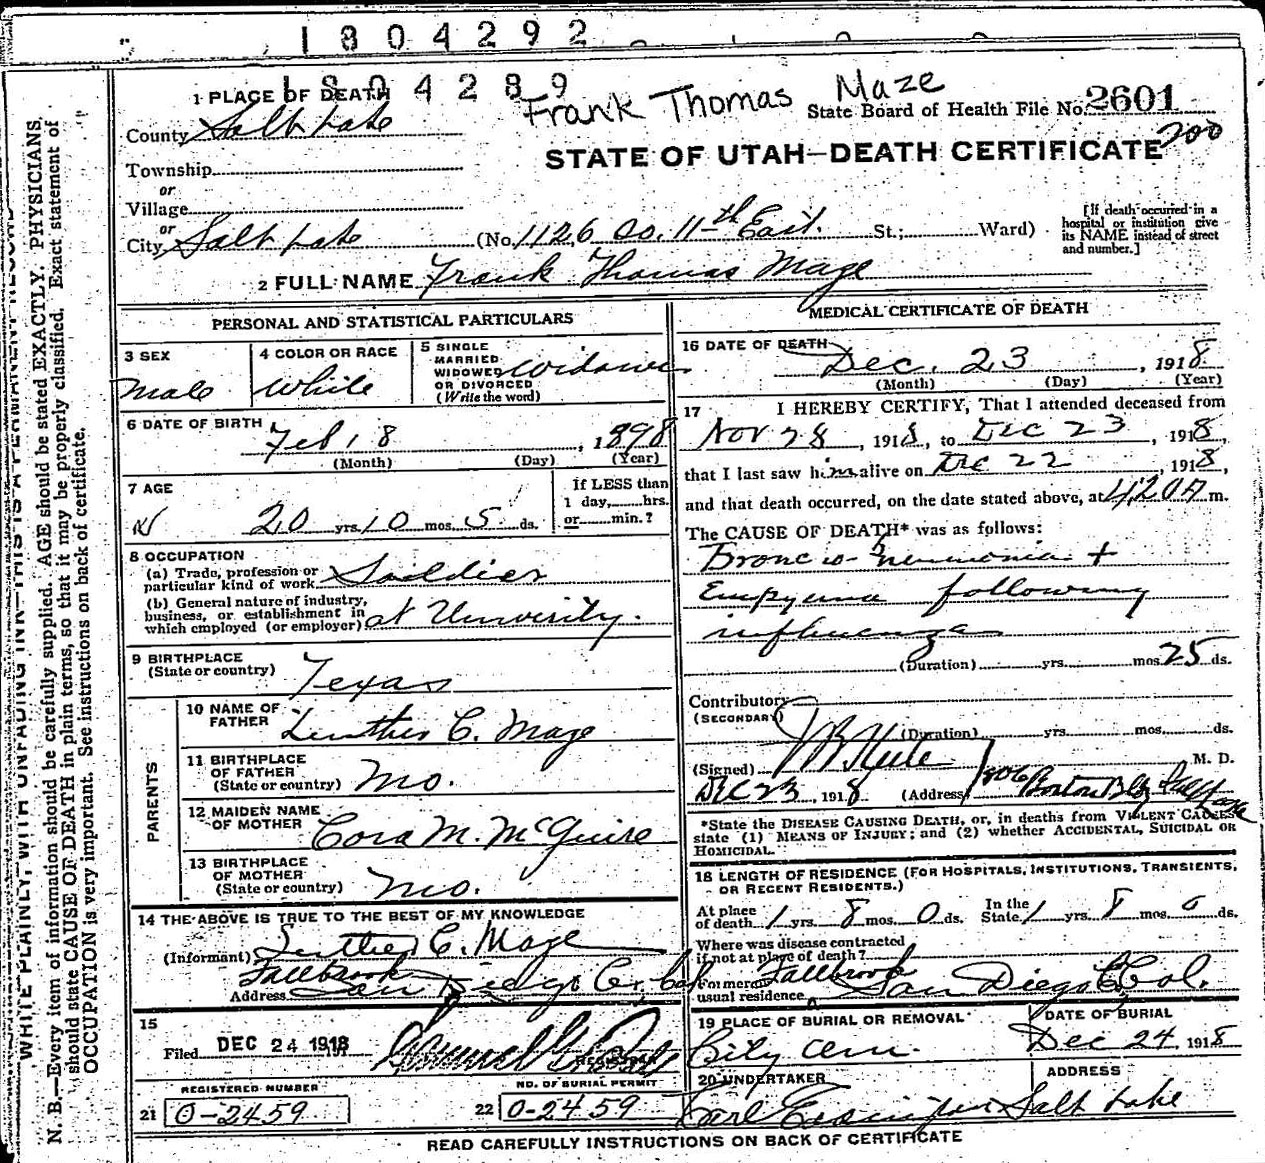 1804292
1804289
Frank Thomas Maze
1 PLACE OF DEATH
State Board of Health File No. 2601
County Salt Lake
200
STATE OF UTAH—DEATH CERTIFICATE
Township
or
Village
or
City Salt Lake (No. 1126 So. 11th East. St.; Ward)
[If death occurred in a hospital or institution give its NAME instead of street and number.]
2 FULL NAME Frank Thomas Maze
PERSONAL AND STATISTICAL PARTICULARS
3 SEX
Male
4 COLOR OR RACE
White
5 SINGLE
MARRIED
WIDOWED
OR DIVORCED
(Write the word)
Widower
6 DATE OF BIRTH
Feb 18, 1898
(Month) (Day) (Year)
7 AGE
20 yrs. 10 mos. 5 ds.
If LESS than
1 day, hrs.
or min.?
8 OCCUPATION
(a) Trade, profession or
particular kind of work Soldier
(b) General nature of industry,
business, or establishment in
which employed (or employer) at University.
9 BIRTHPLACE
(State or country) Texas
PARENTS
10 NAME OF
FATHER Luther C. Maze
11 BIRTHPLACE
OF FATHER
(State or country) Mo.
12 MAIDEN NAME
OF MOTHER Cora M. McGuire
13 BIRTHPLACE
OF MOTHER
(State or country) Mo.
14 THE ABOVE IS TRUE TO THE BEST OF MY KNOWLEDGE
(Informant) Luther C. Maze
Fallbrook
Address San Diego Co., Cal
15
Filed DEC 24 1918
REGISTRAR
REGISTERED NUMBER
21 0-2459
NO. OF BURIAL PERMIT
22 0-2459
MEDICAL CERTIFICATE OF DEATH
16 DATE OF DEATH
Dec. 23, 1918
(Month) (Day) (Year)
17 I HEREBY CERTIFY, That I attended deceased from
Nov 28, 1918, to Dec 23, 1918,
that I last saw him alive on Dec 22, 1918,
and that death occurred, on the date stated above, at m.
The CAUSE OF DEATH* was as follows:
Broncho Pneumonia +
Empyema following
influenza
(Duration) yrs. mos. 25 ds.
Contributory
(SECONDARY)
(Duration) yrs. mos. ds.
(Signed) M. D.
Dec 23, 1918 (Address) Boston Bldg Salt Lake
*State the DISEASE CAUSING DEATH, or, in deaths from VIOLENT CAUSES, state (1) MEANS OF INJURY; and (2) whether ACCIDENTAL, SUICIDAL OR HOMICIDAL.
18 LENGTH OF RESIDENCE (FOR HOSPITALS, INSTITUTIONS, TRANSIENTS, OR RECENT RESIDENTS.)
At place
of death 1 yrs. 8 mos. 0 ds.
In the
State 1 yrs. 8 mos. 0 ds.
Where was disease contracted
if not at place of death?
Former or
usual residence Fallbrook San Diego Co, Cal.
19 PLACE OF BURIAL OR REMOVAL
City Cem.
DATE OF BURIAL
Dec 24, 1918
20 UNDERTAKER
ADDRESS
Salt Lake
READ CAREFULLY INSTRUCTIONS ON BACK OF CERTIFICATE
WRITE PLAINLY, WITH UNFADING INK—THIS IS A PERMANENT RECORD
N. B.—Every item of information should be carefully supplied. AGE should be stated EXACTLY. PHYSICIANS
should state CAUSE OF DEATH in plain terms, so that it may be properly classified. Exact statement of
OCCUPATION is very important. See instructions on back of certificate.